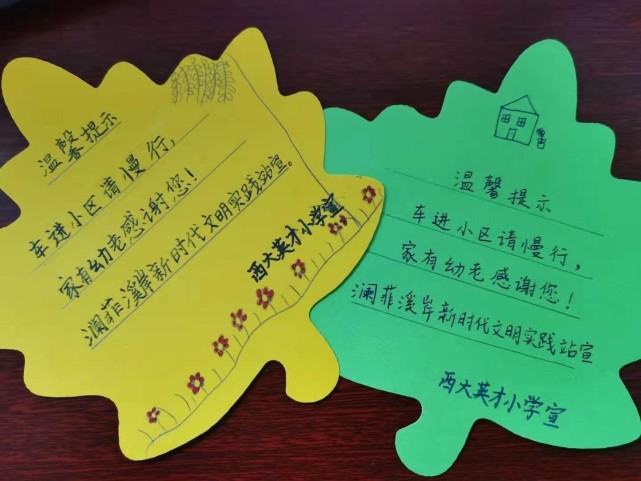 温馨提示
车进小区请慢行，
家有幼老感谢您！
澜菲溪岸新时代文明实践站宣。
西大英才小学宣
温馨提示
车进小区请慢行，
家有幼老感谢您！
澜菲溪岸新时代文明实践站宣
西大英才小学宣